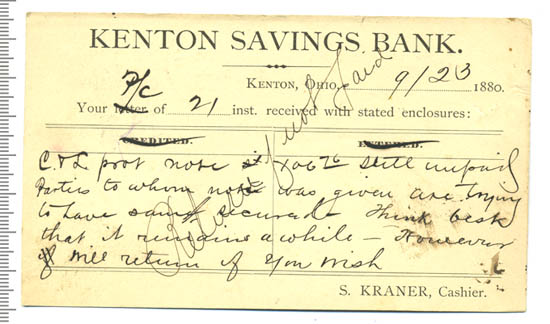 KENTON SAVINGS BANK.
KENTON, OHIO, 9/23 1880.
P/C
Your letter of 21 inst. received with stated enclosures:
CREDITED. ENTERED.
C & L note still unpaid
Parties to whom note was given are trying
to have same secured. Think best
that it remains a while – However
will return if you wish
not paid
S. KRANER, Cashier.